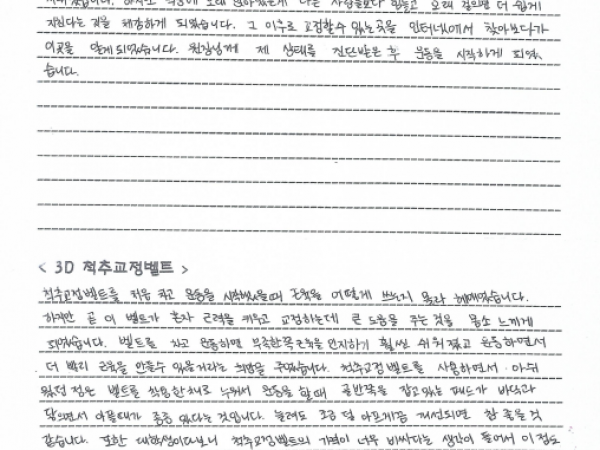 오래 앉아있는게 다른 사람들보다 힘들고 오래 걸으면 더 쉽게
지친다는 것을 체감하게 되었습니다. 그 이후로 교정할 수 있는 곳을 인터넷에서 찾아보다가
이곳을 알게 되었습니다. 원장님께 제 상태를 진단받은 후 운동을 시작하게 되었
습니다.
< 3D 척추교정벨트 >
척추교정벨트를 처음 차고 운동을 시작했을때 근육을 어떻게 쓰는지 몰라 헤매었습니다.
하지만 곧 이 벨트가 혼자 근력을 키우고 교정하는데 큰 도움을 주는 것을 몸소 느끼게
되었습니다. 벨트를 차고 운동하면 부족한쪽 근육을 인지하기 훨씬 쉬워졌고 운동하면서
더 빨리 근육을 만들수 있을거라는 희망을 주었습니다. 척추교정벨트를 사용하면서 아쉬
웠던 점은 벨트를 착용한채로 누워서 운동을 할때 골반쪽을 잡고있는 패드가 바닥과
닿으면서 아플때가 종종 있다는 것입니다. 눌려도 조금 덜 아프게끔 개선되면 참 좋을것
같습니다. 또한 대학생이다보니 척추교정벨트의 가격이 너무 비싸다는 생각이 들어서 이 정도